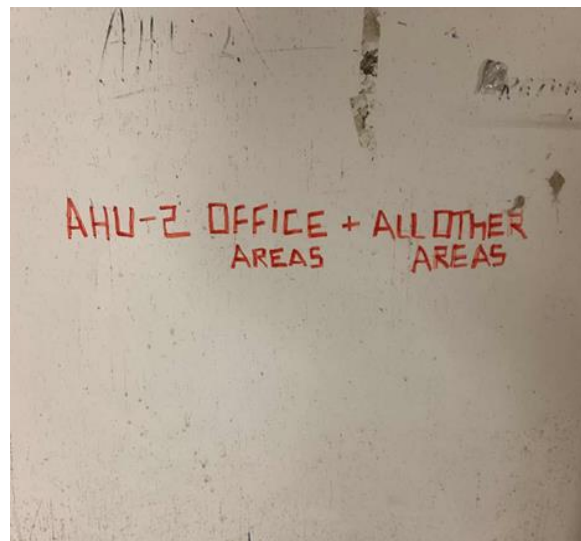 AHU-2
AHU-2 OFFICE + ALL OTHER
AREAS AREAS